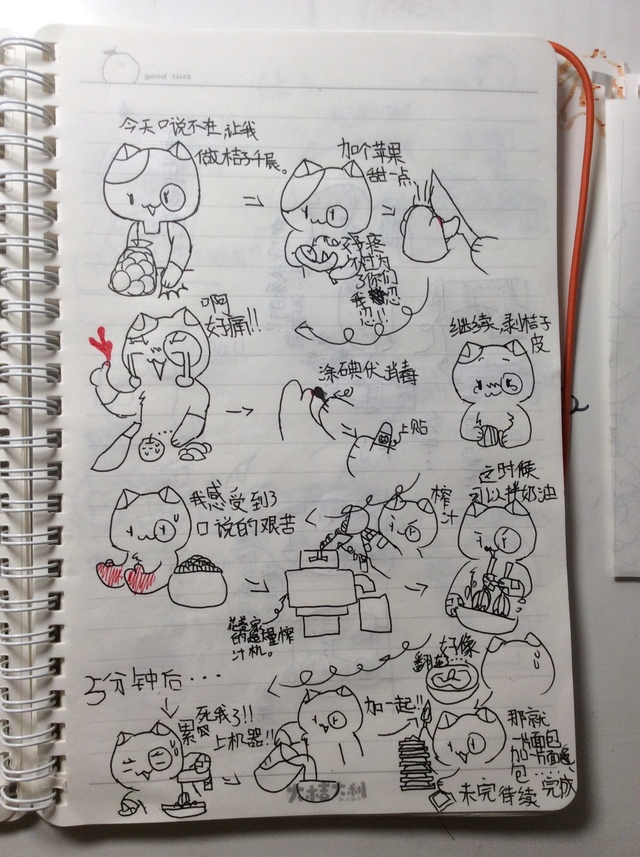 good luck
今天口说不在,让我
做桔子千层。
加个苹果
甜一点
好疼
不过为
了你们
我忍
忍!!
啊
好痛!!
涂碘伏消毒
上贴
继续,剥桔子
皮
我感受到了
口说的艰苦
榨
汁
这时候
可以拌奶油
汁机。
5分钟后···
好像
累
死我了!!
上机器!!
加一起!!
那就
一片面包
加一片面
包……
完成
未完待续
大桔大利